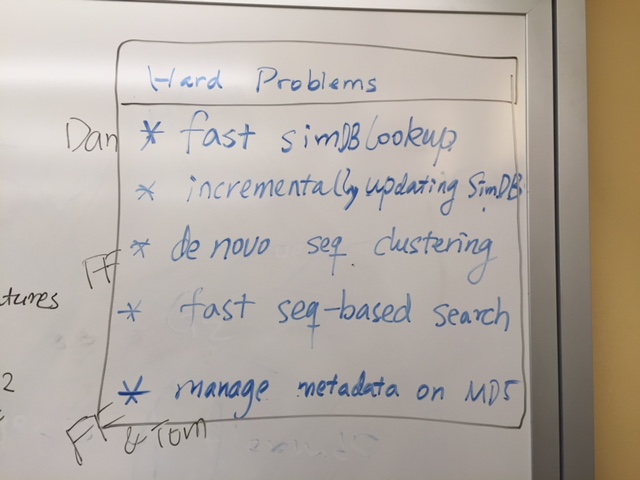 Hard Problems
Dan * fast simDB lookup
* incrementally updating SimDB
FF * de novo seq. clustering
tures
* fast seq-based search
2
* manage metadata on MD5
FF & Tom